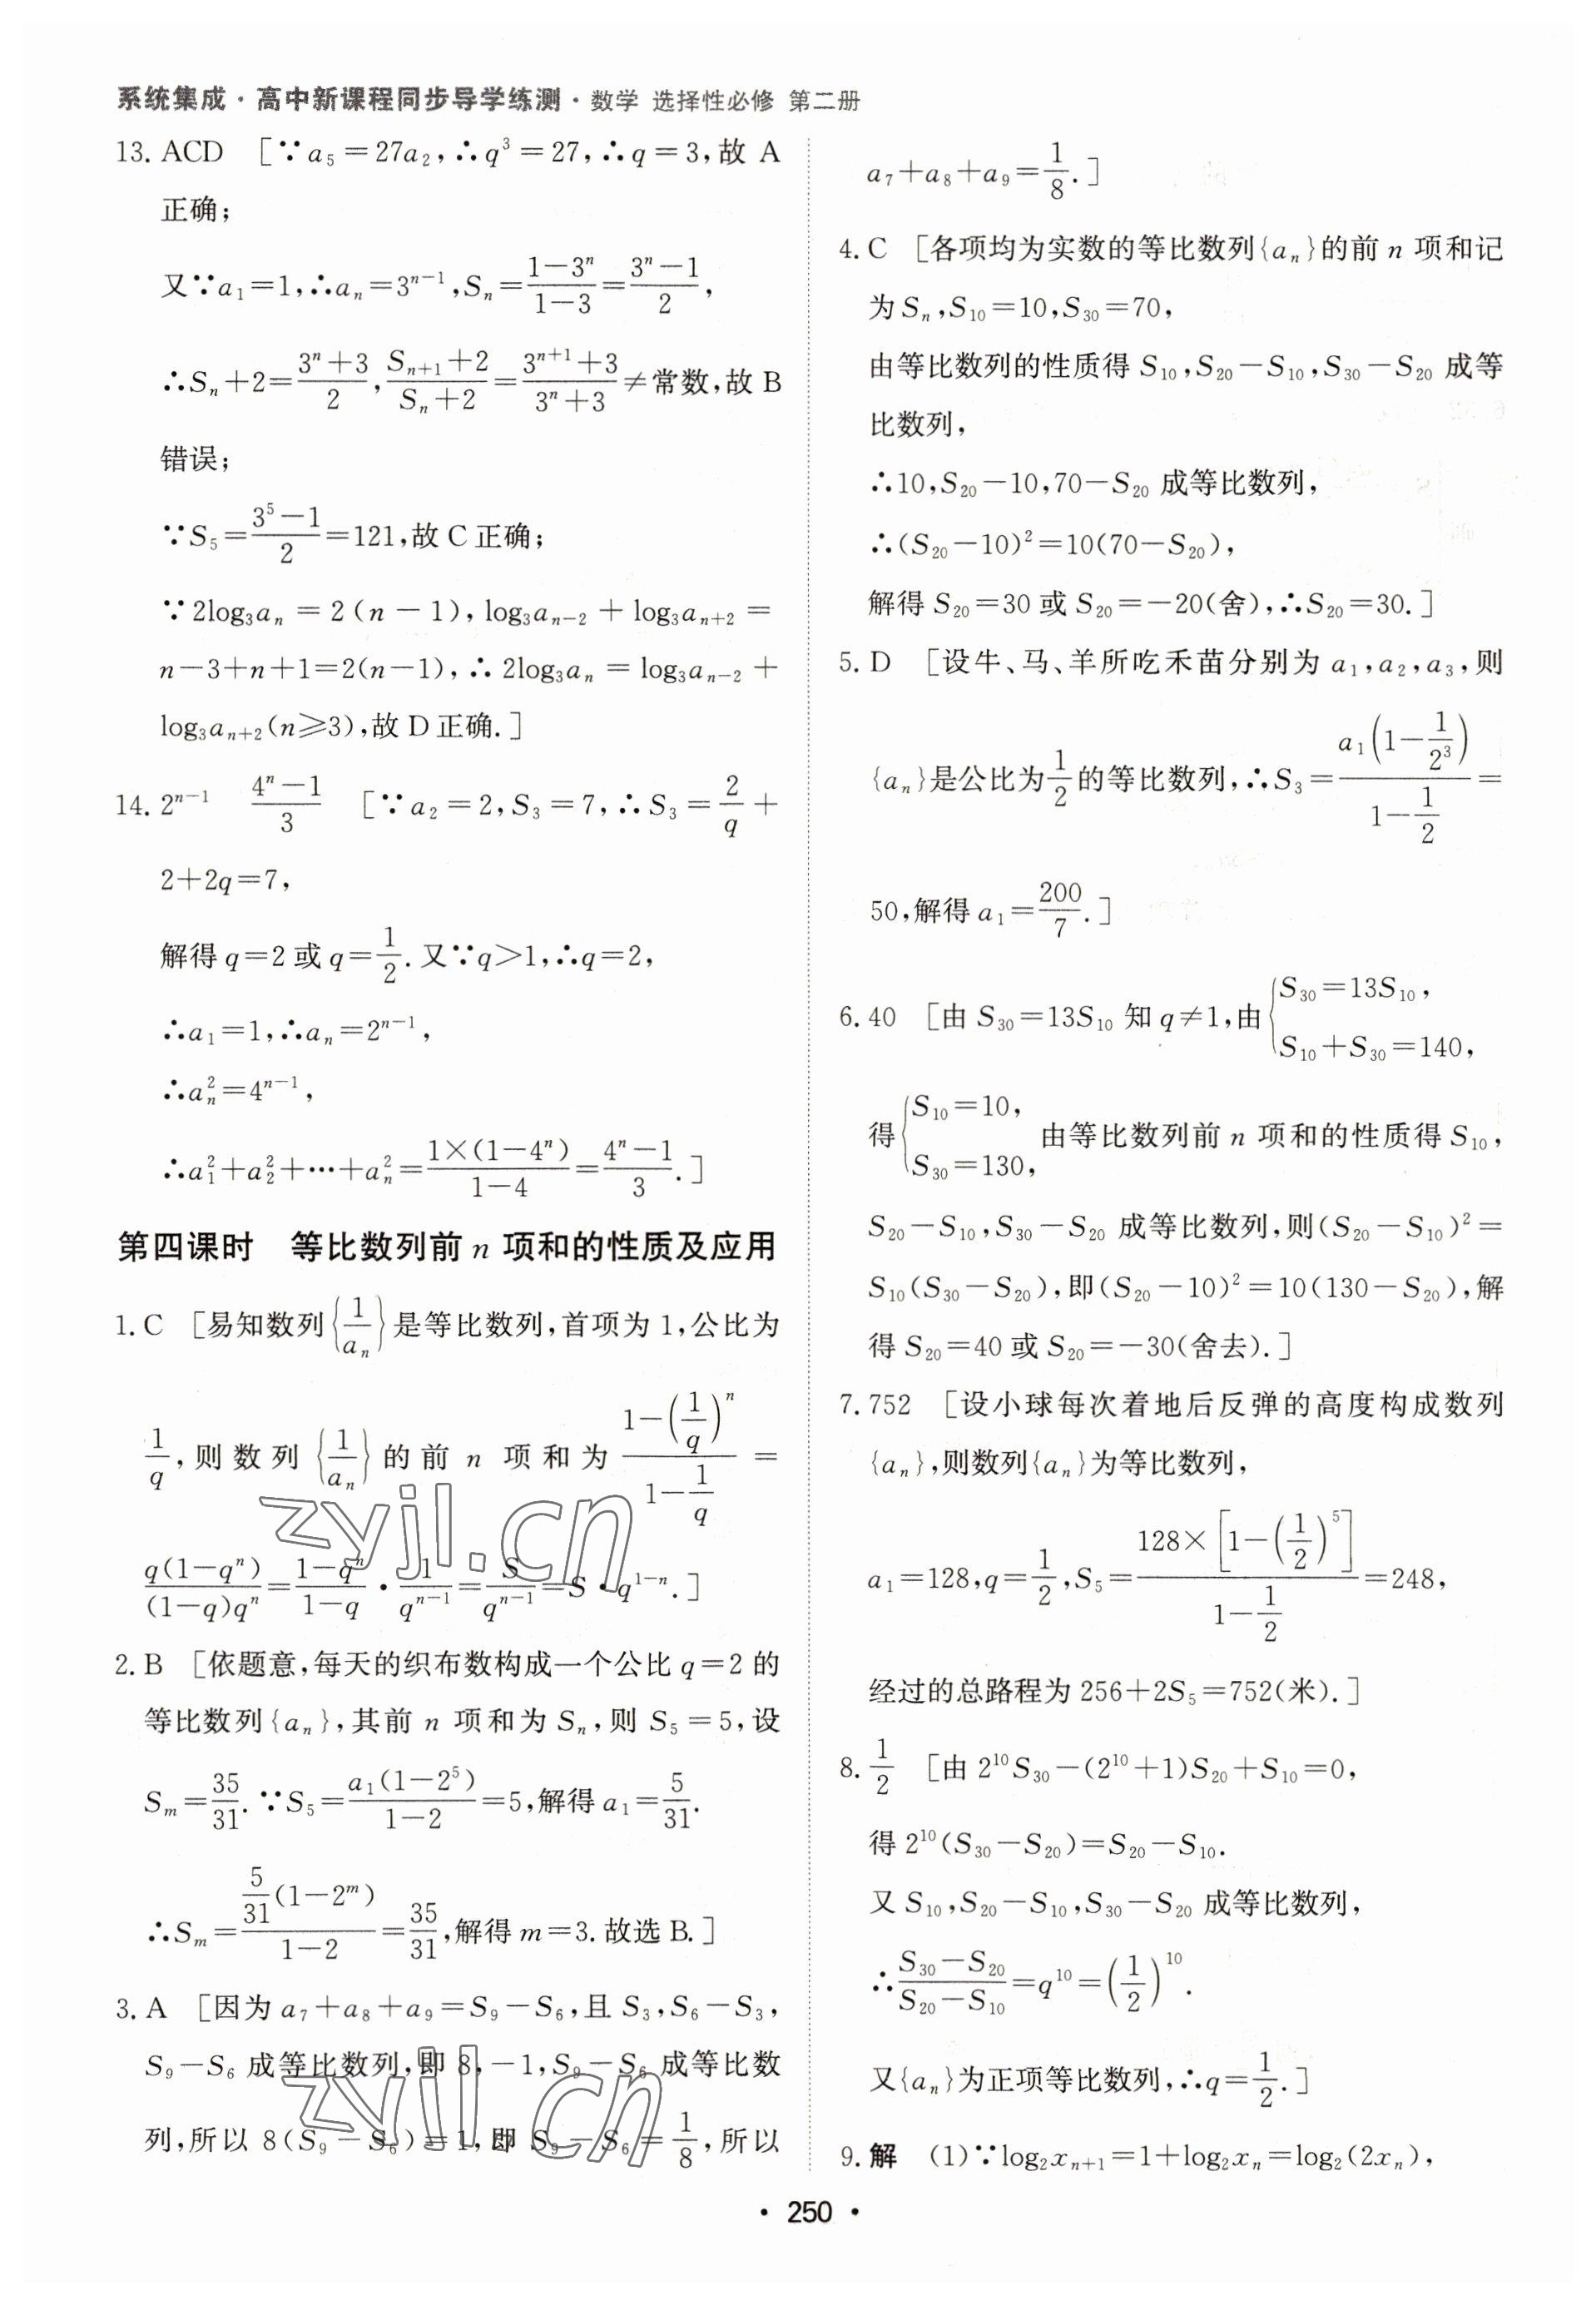 系统集成·高中新课程同步导学练测·数学 选择性必修 第二册
13. ACD [∵a₅=27a₂,∴q³=27,∴q=3,故 A
正确;
又∵a₁=1,∴aₙ=3ⁿ⁻¹,Sₙ=(1-3ⁿ)/(1-3)=(3ⁿ-1)/2,
∴Sₙ+2=(3ⁿ+3)/2,(Sₙ₊₁+2)/(Sₙ+2)=(3ⁿ⁺¹+3)/(3ⁿ+3)≠常数,故 B
错误;
∵S₅=(3⁵-1)/2=121,故 C 正确;
∵2log₃aₙ=2(n-1),log₃aₙ₋₂+log₃aₙ₊₂=
n-3+n+1=2(n-1),∴2log₃aₙ=log₃aₙ₋₂+
log₃aₙ₊₂(n≥3),故 D 正确.]
14. 2ⁿ⁻¹ (4ⁿ-1)/3 [∵a₂=2,S₃=7,∴S₃=2/q+
2+2q=7,
解得 q=2 或 q=1/2.又∵q>1,∴q=2,
∴a₁=1,∴aₙ=2ⁿ⁻¹,
∴aₙ²=4ⁿ⁻¹,
∴a₁²+a₂²+…+aₙ²=(1×(1-4ⁿ))/(1-4)=(4ⁿ-1)/3.]
第四课时 等比数列前 n 项和的性质及应用
1. C [易知数列{1/aₙ}是等比数列,首项为 1,公比为
1/q,则数列{1/aₙ}的前 n 项和为(1-(1/q)ⁿ)/(1-1/q)=
(q(1-qⁿ))/((1-q)qⁿ)=(1-qⁿ)/(1-q)·1/qⁿ⁻¹=S/qⁿ⁻¹=S·q¹⁻ⁿ.]
2. B [依题意,每天的织布数构成一个公比 q=2 的
等比数列{aₙ},其前 n 项和为 Sₙ,则 S₅=5,设
Sₘ=35/31.∵S₅=(a₁(1-2⁵))/(1-2)=5,解得 a₁=5/31.
∴Sₘ=(5/31(1-2ᵐ))/(1-2)=35/31,解得 m=3.故选 B.]
3. A [因为 a₇+a₈+a₉=S₉-S₆,且 S₃,S₆-S₃,
S₉-S₆ 成等比数列,即 8,-1,S₉-S₆ 成等比数
列,所以 8(S₉-S₆)=1,即 S₉-S₆=1/8,所以
a₇+a₈+a₉=1/8.]
4. C [各项均为实数的等比数列{aₙ}的前 n 项和记
为 Sₙ,S₁₀=10,S₃₀=70,
由等比数列的性质得 S₁₀,S₂₀-S₁₀,S₃₀-S₂₀ 成等
比数列,
∴10,S₂₀-10,70-S₂₀ 成等比数列,
∴(S₂₀-10)²=10(70-S₂₀),
解得 S₂₀=30 或 S₂₀=-20(舍),∴S₂₀=30.]
5. D [设牛、马、羊所吃禾苗分别为 a₁,a₂,a₃,则
{aₙ}是公比为1/2的等比数列,∴S₃=(a₁(1-1/2³))/(1-1/2)=
50,解得 a₁=200/7.]
6. 40 [由 S₃₀=13S₁₀ 知 q≠1,由{S₃₀=13S₁₀,
S₁₀+S₃₀=140,
得{S₁₀=10,
S₃₀=130, 由等比数列前 n 项和的性质得 S₁₀,
S₂₀-S₁₀,S₃₀-S₂₀ 成等比数列,则(S₂₀-S₁₀)²=
S₁₀(S₃₀-S₂₀),即(S₂₀-10)²=10(130-S₂₀),解
得 S₂₀=40 或 S₂₀=-30(舍去).]
7. 752 [设小球每次着地后反弹的高度构成数列
{aₙ},则数列{aₙ}为等比数列,
a₁=128,q=1/2,S₅=(128×[1-(1/2)⁵])/(1-1/2)=248,
经过的总路程为 256+2S₅=752(米).]
8. 1/2 [由 2¹⁰S₃₀-(2¹⁰+1)S₂₀+S₁₀=0,
得 2¹⁰(S₃₀-S₂₀)=S₂₀-S₁₀.
又 S₁₀,S₂₀-S₁₀,S₃₀-S₂₀ 成等比数列,
∴(S₃₀-S₂₀)/(S₂₀-S₁₀)=q¹⁰=(1/2)¹⁰.
又{aₙ}为正项等比数列,∴q=1/2.]
9. 解 (1)∵log₂xₙ₊₁=1+log₂xₙ=log₂(2xₙ),
· 250 ·
zyjl.cn
zyjl.cn